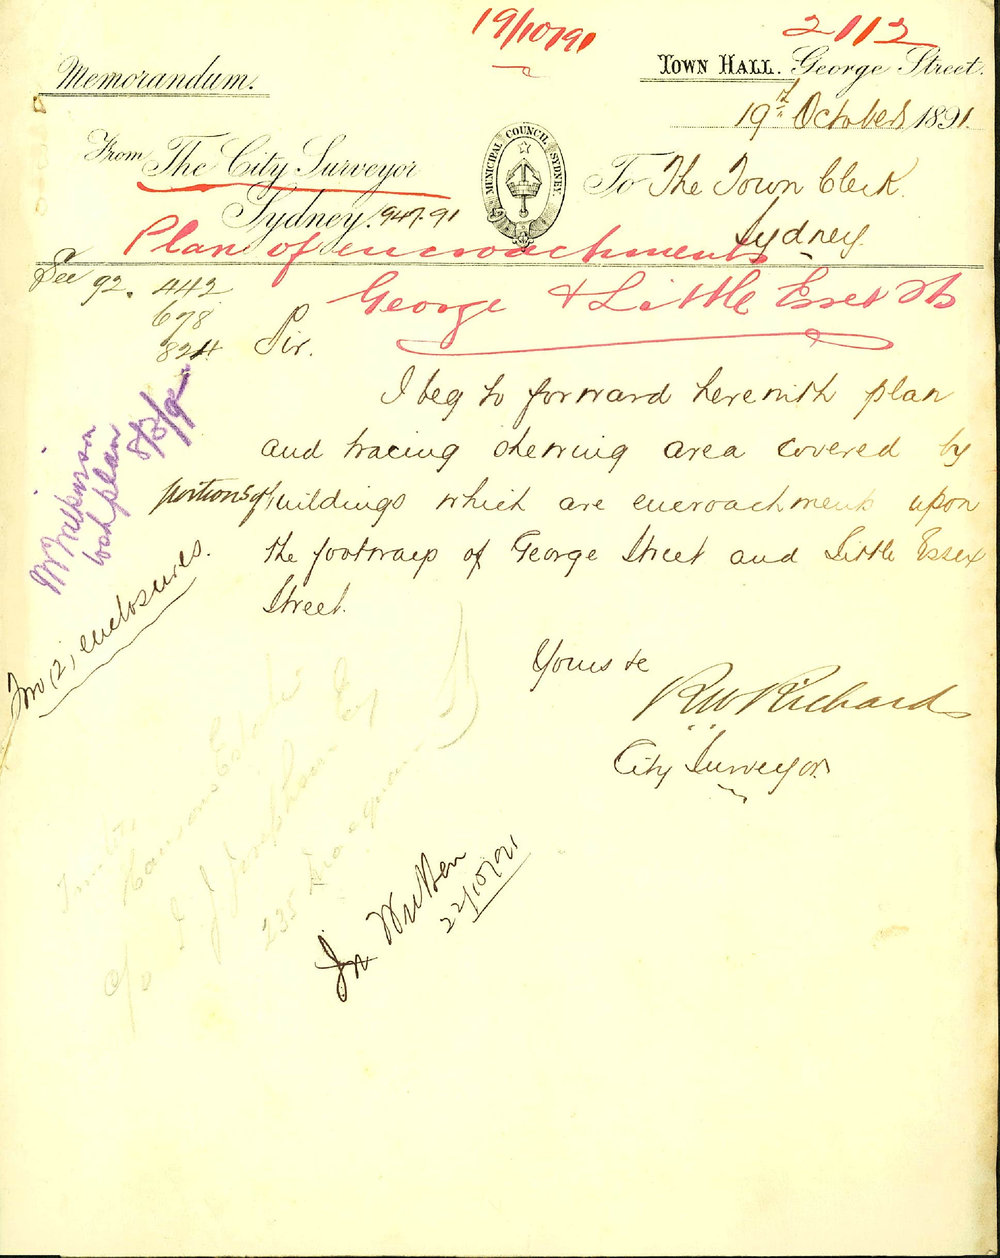 19/10/91
2112
Memorandum.
Town Hall. George Street.
19th October 1891.
From The City Surveyor
MUNICIPAL COUNCIL SYDNEY
To The Town Clerk.
Sydney. 947.91
Sydney.
Plan of encroachments
George & Little Essex St
See 92. 442
678
824
Sir.
I beg to forward herewith plan
and tracing shewing area covered by
portions of buildings which are encroachments upon
the footways of George Street and Little Essex
Street.
plan
8/3/9
Two (2) enclosures.
Yours &c
RW Richards
City Surveyor
Estate
c/o
235
22/10/91